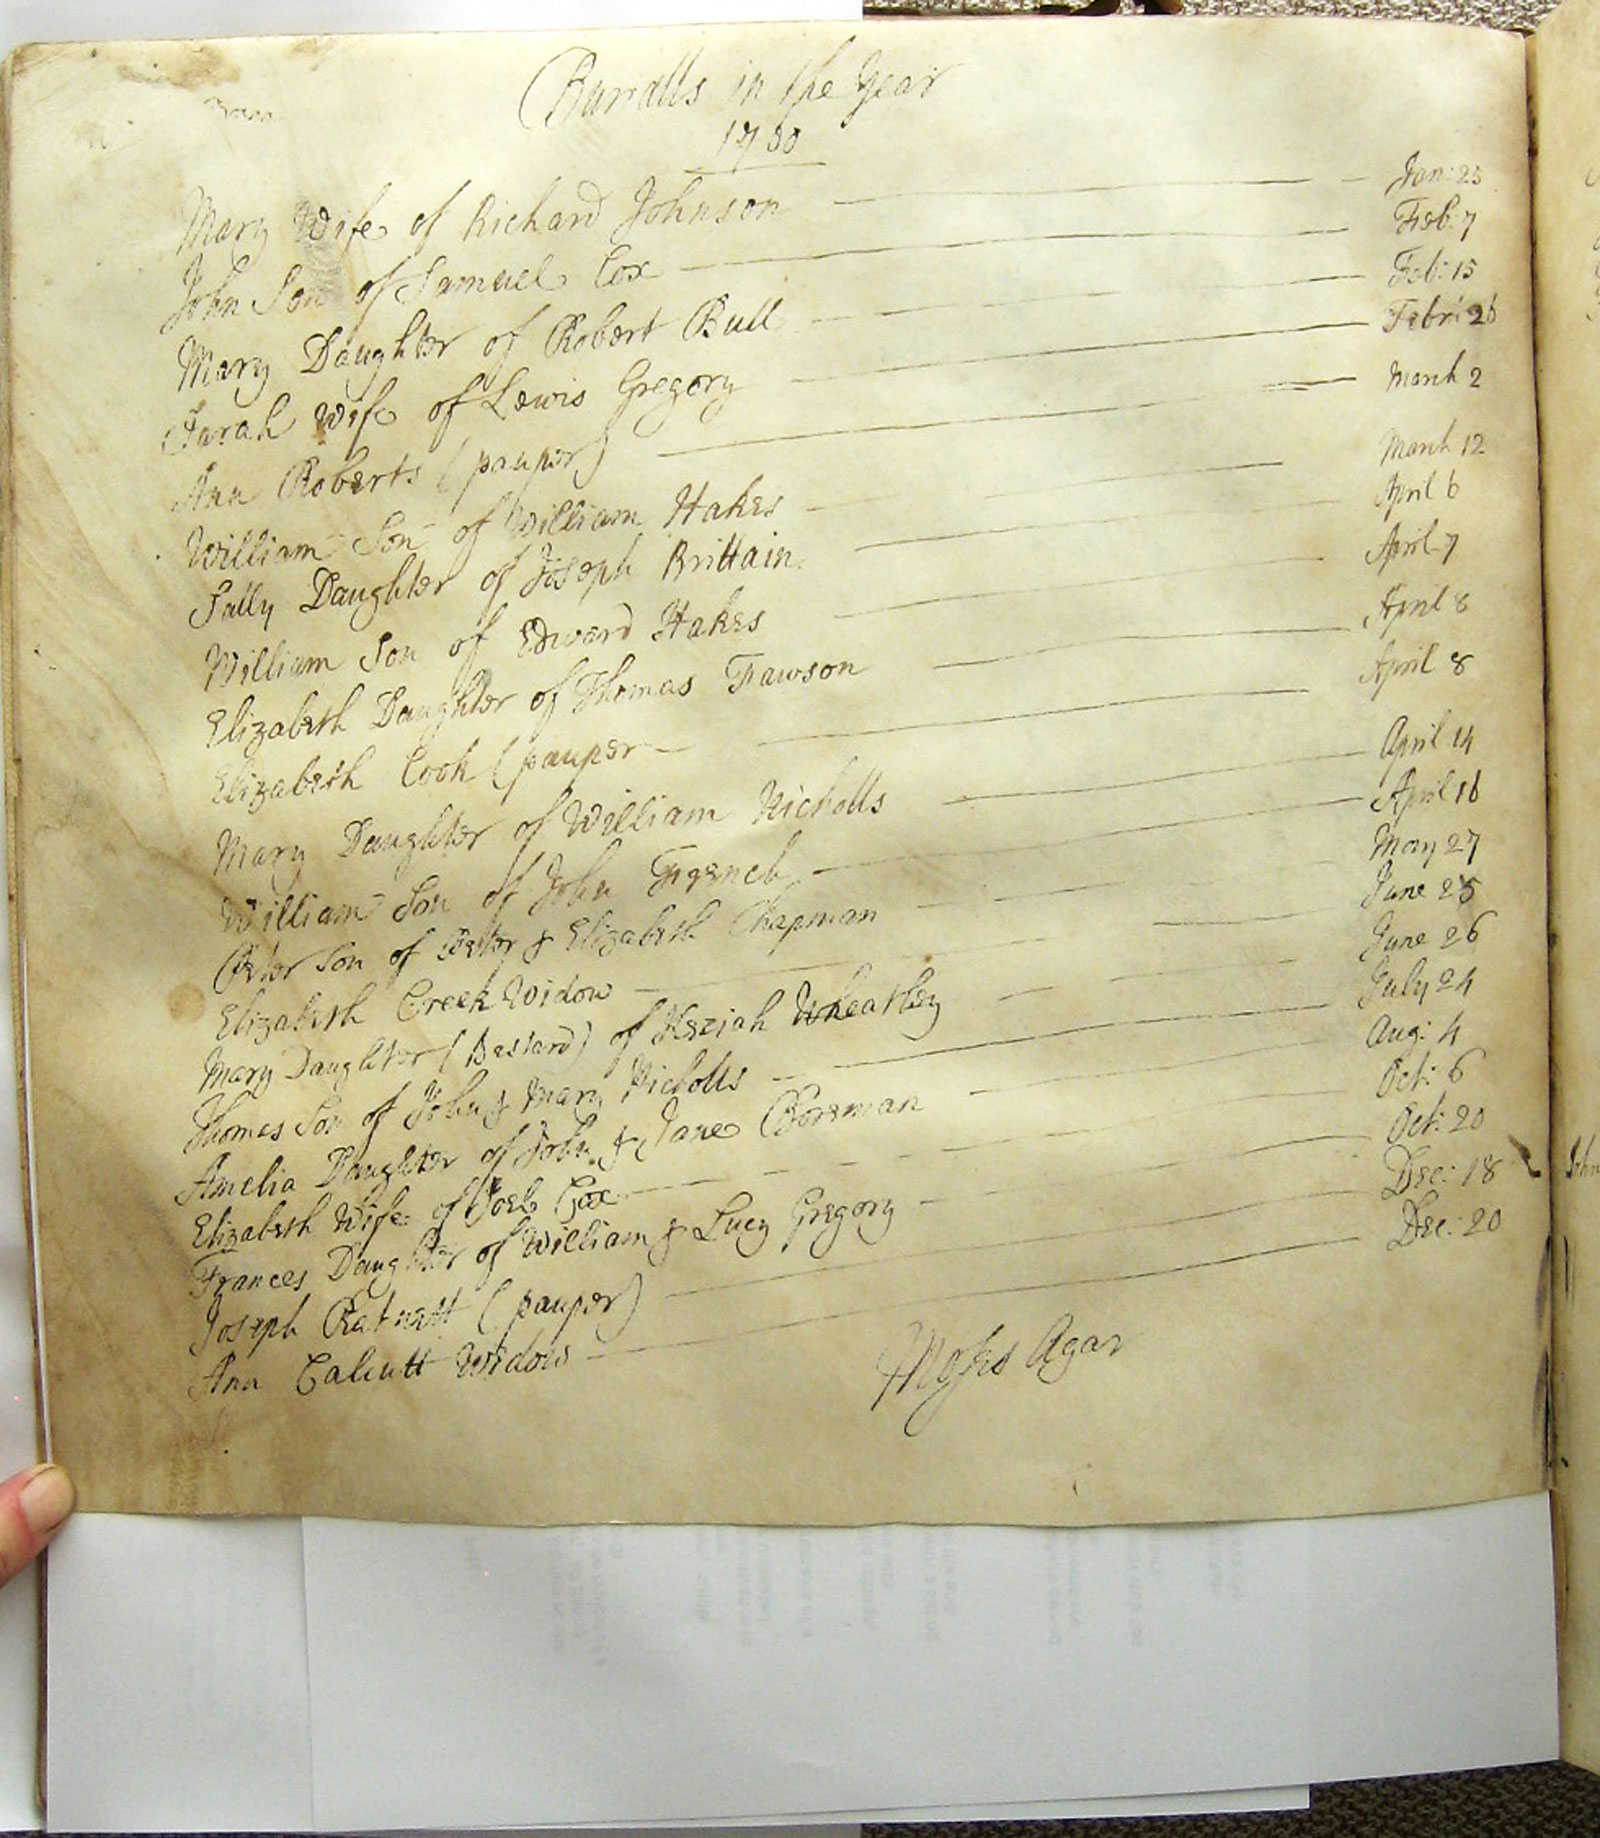 Burialls in the Year
1780
Mary Wife of Richard Johnson Jan: 23
John Son of Samuel Cox Feb: 7
Mary Daughter of Robert Bull Feb: 15
Sarah Wife of Lewis Gregory Febr: 26
Ann Roberts (pauper) March 2
William Son of William Hakes March 12
Sally Daughter of Joseph Brittain April 6
William Son of Edward Hakes April 7
Elizabeth Daughter of Thomas Fawson April 8
Elizabeth Cook (pauper April 8
Mary Daughter of William Nicholls April 14
William Son of John French April 16
Peter Son of Peter & Elizabeth Chapman May 27
Elizabeth Creek Widow June 25
Mary Daughter (Bastard) of Keziah Wheatley June 26
Thomas Son of John & Mary Nicholls July 24
Amelia Daughter of John & Jane Boreman Aug: 4
Elizabeth Wife of Joel Cox Oct: 6
Frances Daughter of William & Lucy Gregory Oct: 20
Joseph (pauper) Dec: 18
Ann Calcutt Widow Dec: 20
Moses Agar
John